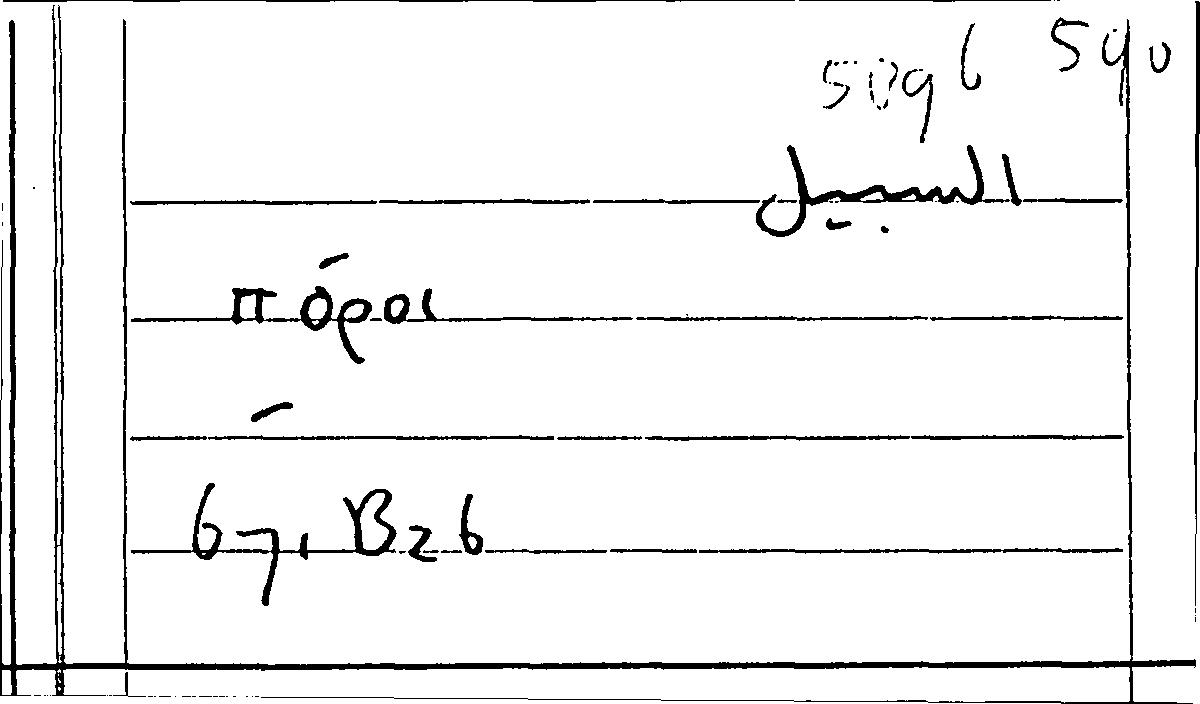 5096 590
السبيل
πόροι
–
67, B26